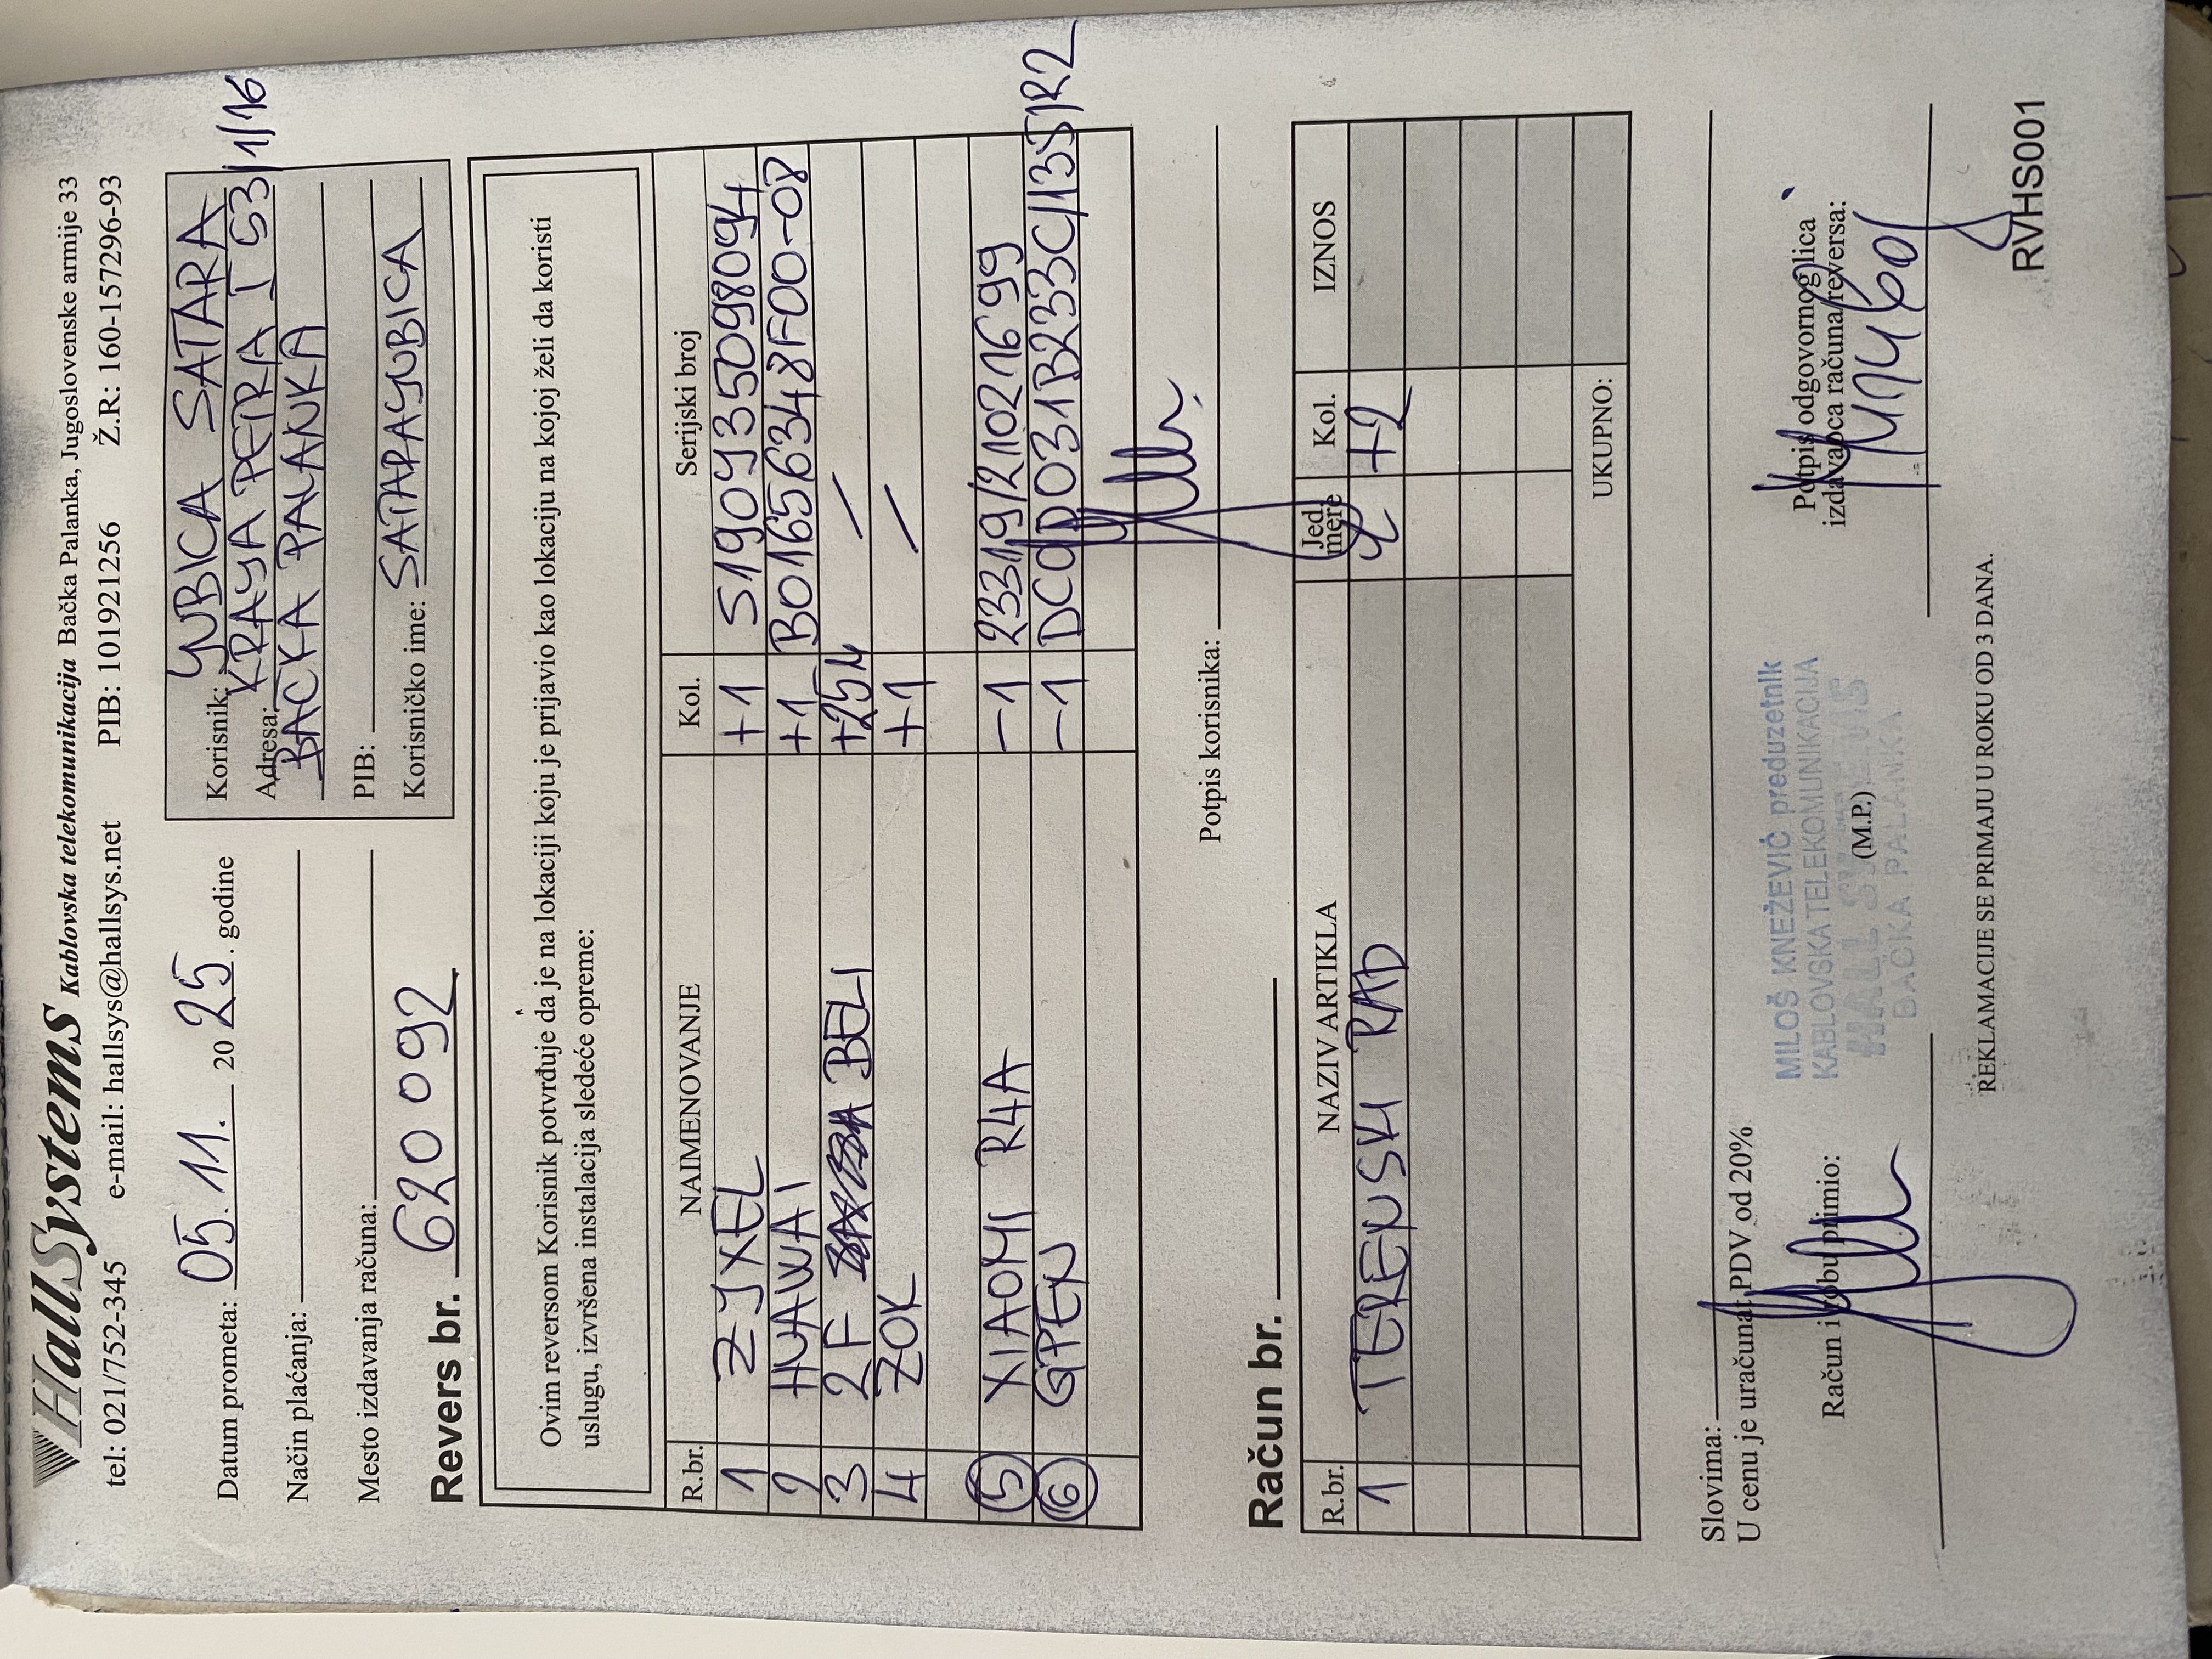 HallSystems Kablovska telekomunikacija Bačka Palanka, Jugoslovenske armije 33
tel: 021/752-345 e-mail: hallsys@hallsys.net PIB: 101921256 Ž.R.: 160-157296-93
Datum prometa: 05. 11. 20 25. godine
Način plaćanja:
Mesto izdavanja računa:
Korisnik: YUBICA SATARA
Adresa: KRAYA PETRA I 53/1/16
BACKA PALANKA
PIB:
Korisničko ime: SATARAYUBICA
Revers br. 620 092
Ovim reversom Korisnik potvrđuje da je na lokaciji koju je prijavio kao lokaciju na kojoj želi da koristi
uslugu, izvršena instalacija sledeće opreme:
R.br. NAIMENOVANJE Kol. Serijski broj
1 ZYXEL +1 S190Y35098094
2 HUAWAI +1 B01656348F00-08
3 2F BELI +25M /
4 ZOK +1 /
5 XIAOMI R4A -1 23319/21021699
6 GPEN -1 DC9D031B233C/13SJR2
Potpis korisnika:
Račun br.
R.br. NAZIV ARTIKLA Jed. mere Kol. IZNOS
1 TERENSKI RAD +2
UKUPNO:
Slovima:
U cenu je uračunat PDV od 20%
Račun i robu primio:
MILOŠ KNEŽEVIĆ preduzetnik
KABLOVSKA TELEKOMUNIKACIJA
HALL SYSTEMS
BAČKA PALANKA
(M.P.)
Potpis odgovornog lica
izdavaoca računa/reversa:
REKLAMACIJE SE PRIMAJU U ROKU OD 3 DANA.
RVHS001